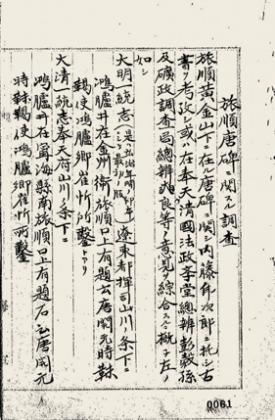 旅順唐碑ニ関スル調査
旅順黄金山下ニ在ル唐碑ニ関シ内藤虎次郎ニ托シ古
書ヲ考攷シ或ハ在奉天清国法政学堂総辨彭穀孫
及礦政調査局総辨 良等ノ意見ヲ綜合スルニ概子左ノ
如シ
大明一統志 遼東都指揮司山川ノ条下ニ
鴻臚井在金州衛旅順口上有題石云唐開元時勅
鞨使鴻臚卿崔忻所鑿トアリ
大清一統志奉天府山川ノ条下ニ
鴻臚井在寧海県南旅順口上有題石云唐開元
時 鞨使鴻臚卿崔忻所鑿
0061